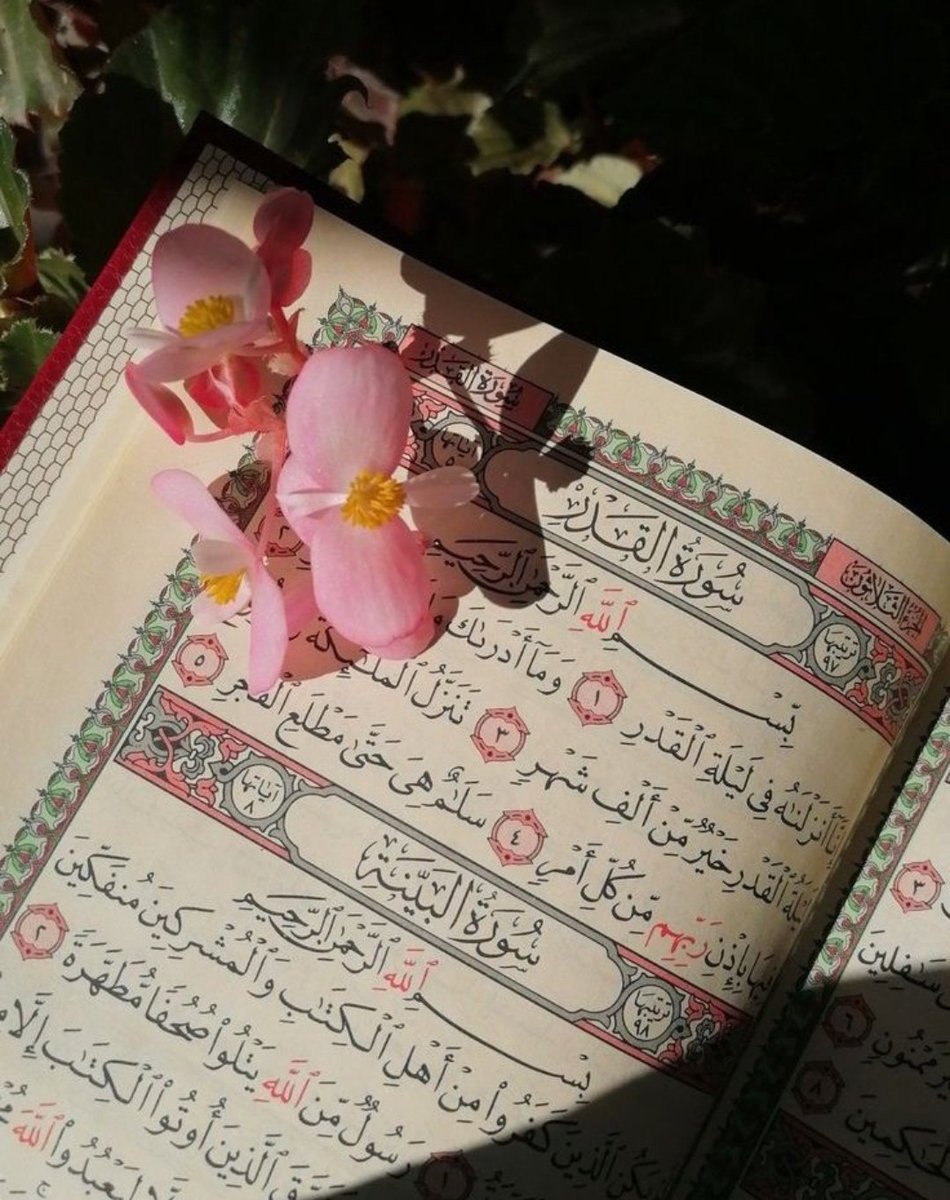 الجزء الثلاثون
سورة القدر
ترتيبها ٩٧ سُورَةُ القَدْرِ آياتها ٥
بِسْمِ ٱللَّهِ ٱلرَّحْمَٰنِ ٱلرَّحِيمِ
إِنَّآ أَنزَلْنَٰهُ فِى لَيْلَةِ ٱلْقَدْرِ ١ وَمَآ أَدْرَىٰكَ
لَيْلَةُ ٱلْقَدْرِ خَيْرٌ مِّنْ أَلْفِ شَهْرٍ ٣ تَنَزَّلُ ٱلْمَلَٰٓئِكَةُ
فِيهَا بِإِذْنِ رَبِّهِم مِّن كُلِّ أَمْرٍ ٤ سَلَٰمٌ هِىَ حَتَّىٰ مَطْلَعِ ٱلْفَجْرِ ٥
ترتيبها ٩٨ سُورَةُ البَيِّنَةِ آياتها ٨
بِسْمِ ٱللَّهِ ٱلرَّحْمَٰنِ ٱلرَّحِيمِ
يَكُنِ ٱلَّذِينَ كَفَرُوا۟ مِنْ أَهْلِ ٱلْكِتَٰبِ وَٱلْمُشْرِكِينَ مُنفَكِّينَ
١ رَسُولٌ مِّنَ ٱللَّهِ يَتْلُوا۟ صُحُفًا مُّطَهَّرَةً ٢
ٱلَّذِينَ أُوتُوا۟ ٱلْكِتَٰبَ إِلَّا
لِيَعْبُدُوا۟ ٱللَّهَ
٣
سَٰفِلِينَ
٦ مَمْنُونٍ
٨ ٱلْحَٰكِمِينَ